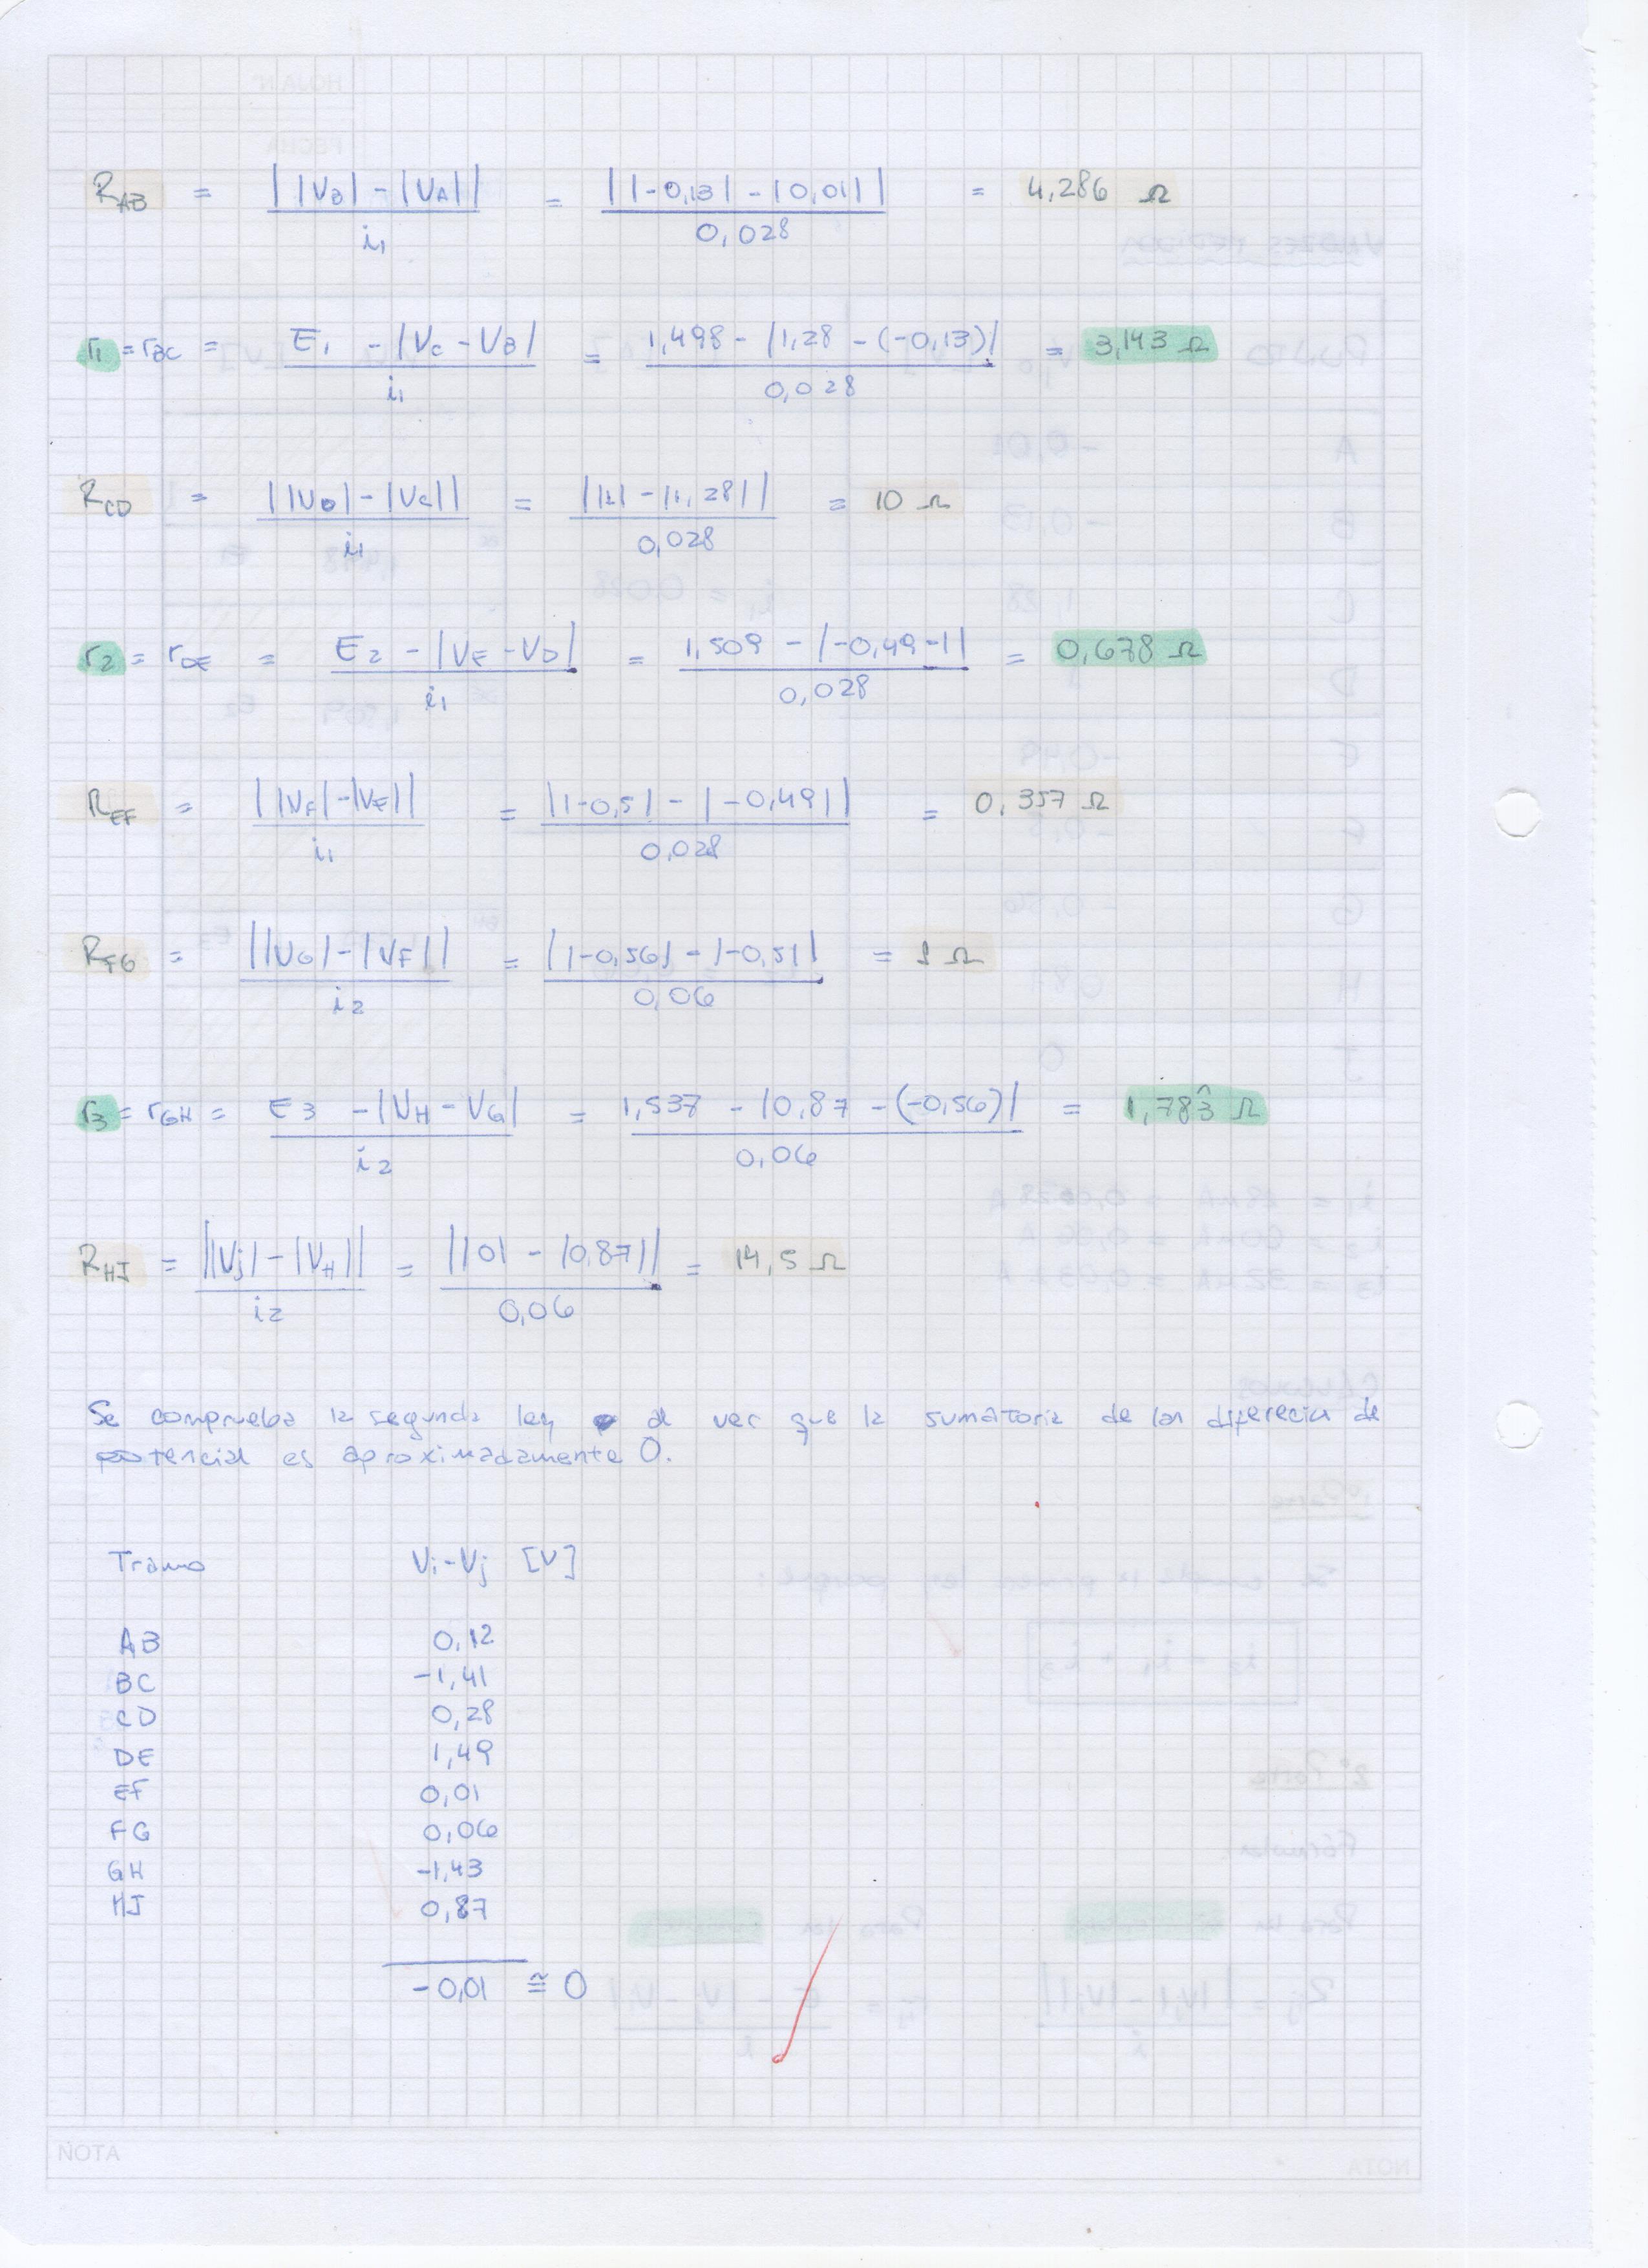 R_AB = ||V_B| - |V_A|| / i_1 = ||-0,13| - |0,01|| / 0,028 = 4,286 Ω
r_1 = r_BC = E_1 - |V_C - V_B| / i_1 = 1,498 - |1,28 - (-0,13)| / 0,028 = 3,143 Ω
R_CD = ||V_D| - |V_C|| / i_1 = ||1| - |1,28|| / 0,028 = 10 Ω
r_2 = r_DE = E_2 - |V_E - V_D| / i_1 = 1,509 - |-0,49 - 1| / 0,028 = 0,678 Ω
R_EF = ||V_F| - |V_E|| / i_1 = ||-0,5| - |-0,49|| / 0,028 = 0,357 Ω
R_FG = ||V_G| - |V_F|| / i_2 = ||-0,56| - |-0,5|| / 0,06 = 1 Ω
r_3 = r_GH = E_3 - |V_H - V_G| / i_2 = 1,537 - |0,87 - (-0,56)| / 0,06 = 1,783̂ Ω
R_HJ = ||V_J| - |V_H|| / i_2 = ||0| - |0,87|| / 0,06 = 14,5 Ω
Se comprueba la segunda ley al ver que la sumatoria de las diferecia de
potencial es aproximadamente 0.
Tramo V_i - V_j [V]
AB 0,12
BC -1,41
CD 0,28
DE 1,49
EF 0,01
FG 0,06
GH -1,43
HJ 0,87
-0,01 ≅ 0
NOTA